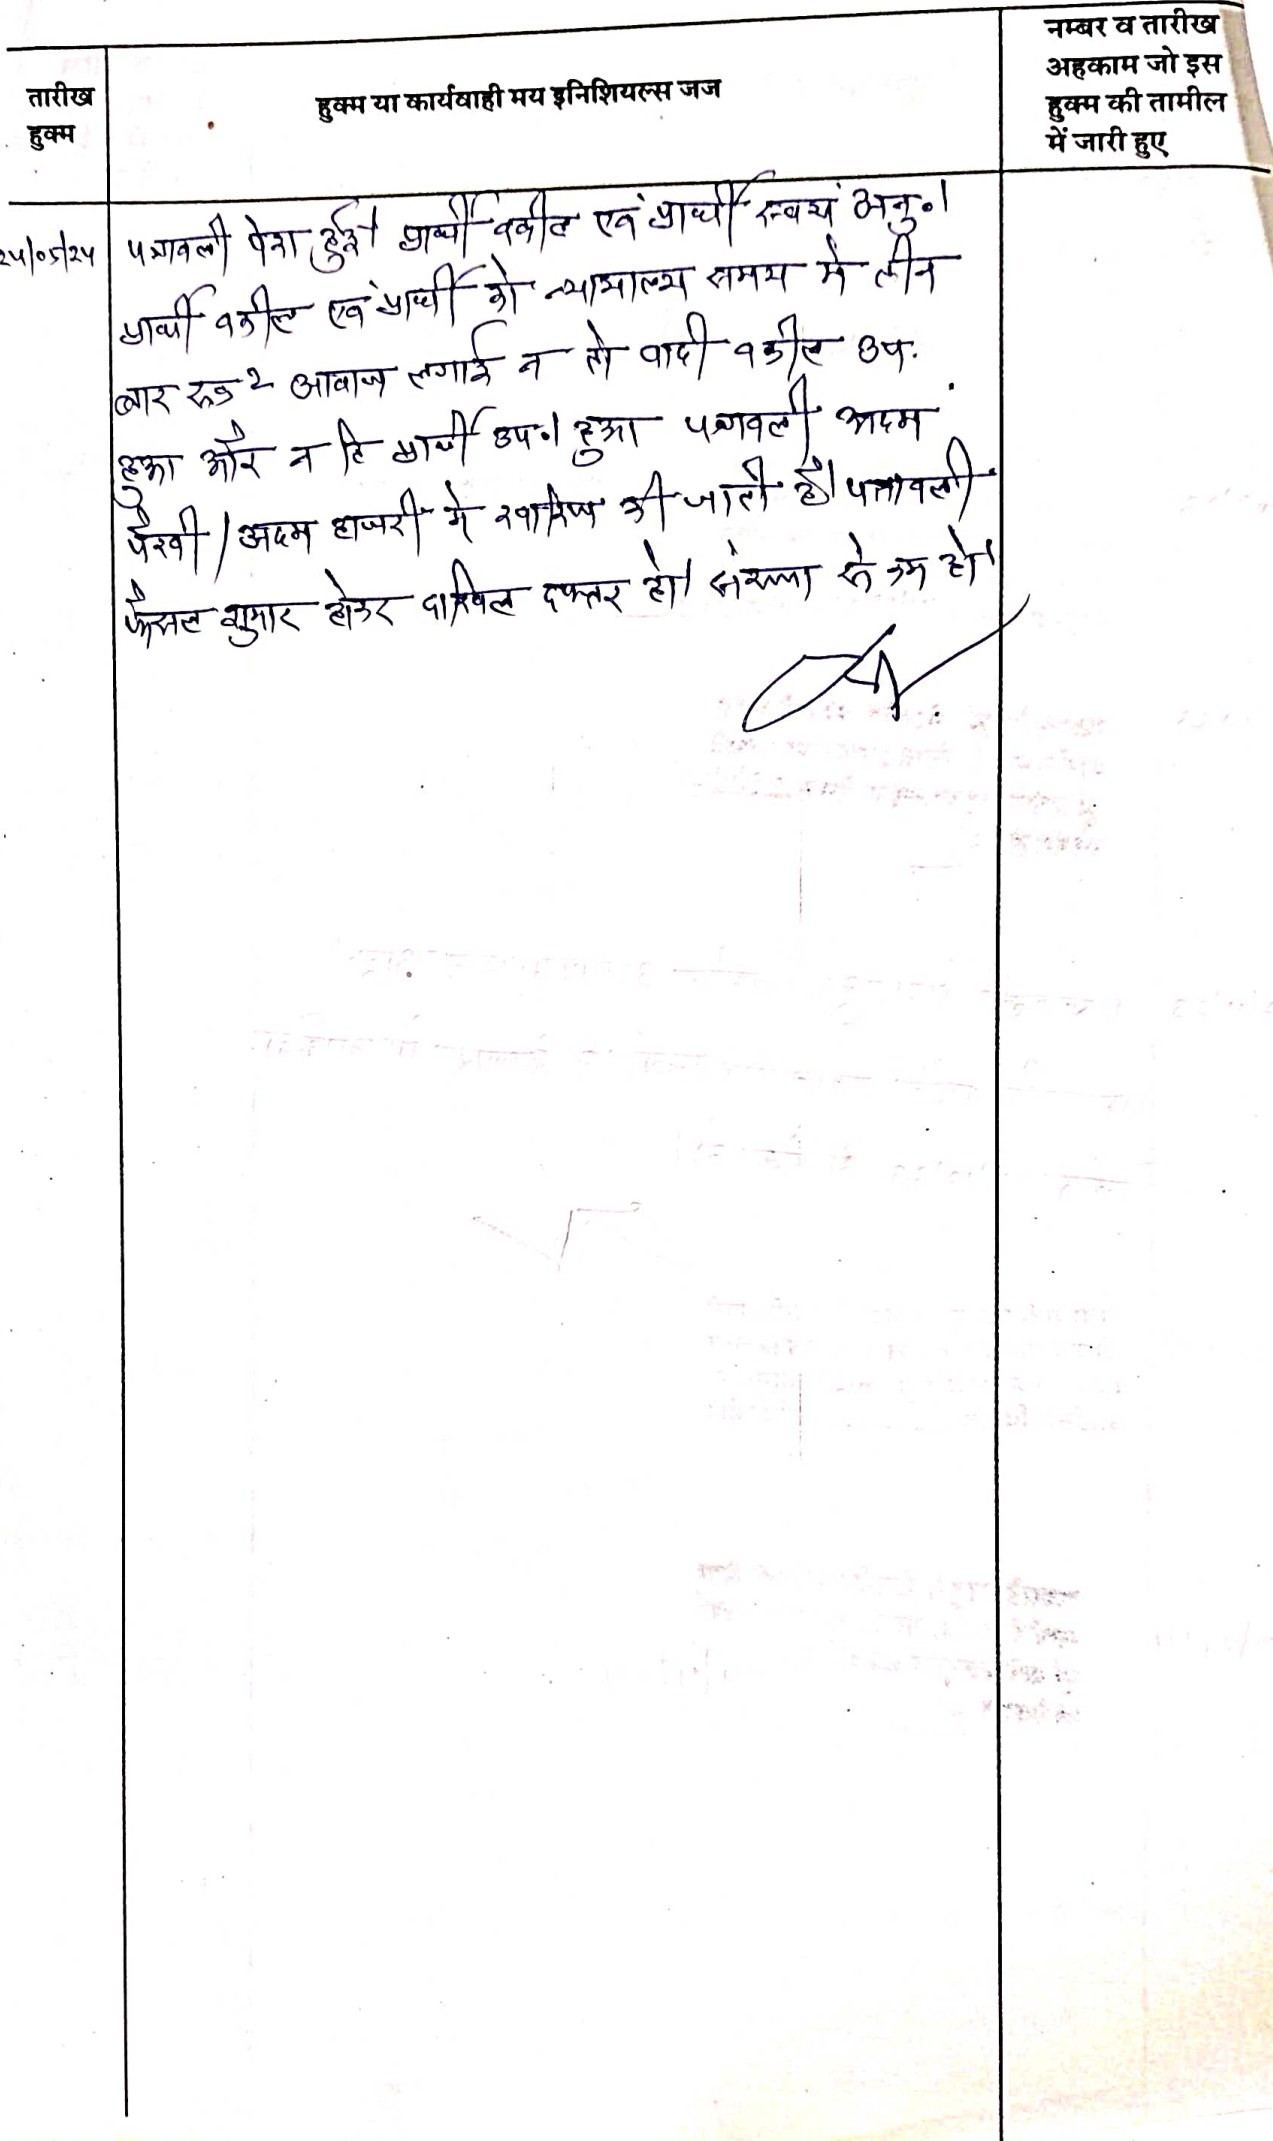 तारीख
हुक्म
हुक्म या कार्यवाही मय इनिशियल्स जज
नम्बर व तारीख
अहकाम जो इस
हुक्म की तामील
में जारी हुए
24/05/24
पत्रावली पेश हुई। प्रार्थी वकील एवं प्रार्थी स्वयं अनु०।
प्रार्थी वकील एवं प्रार्थी को न्यायालय समय मे तीन
बार रूक 2 आवाज लगाई न तो वादी वकील उप.
हुआ और न हि प्रार्थी उप.। हुआ पत्रावली अदम
पैरवी / अदम हाजरी मे खारिज की जाती है। पत्रावली
फैसल शुमार होकर दाखिल दफ्तर हो। संख्या से कम हो।